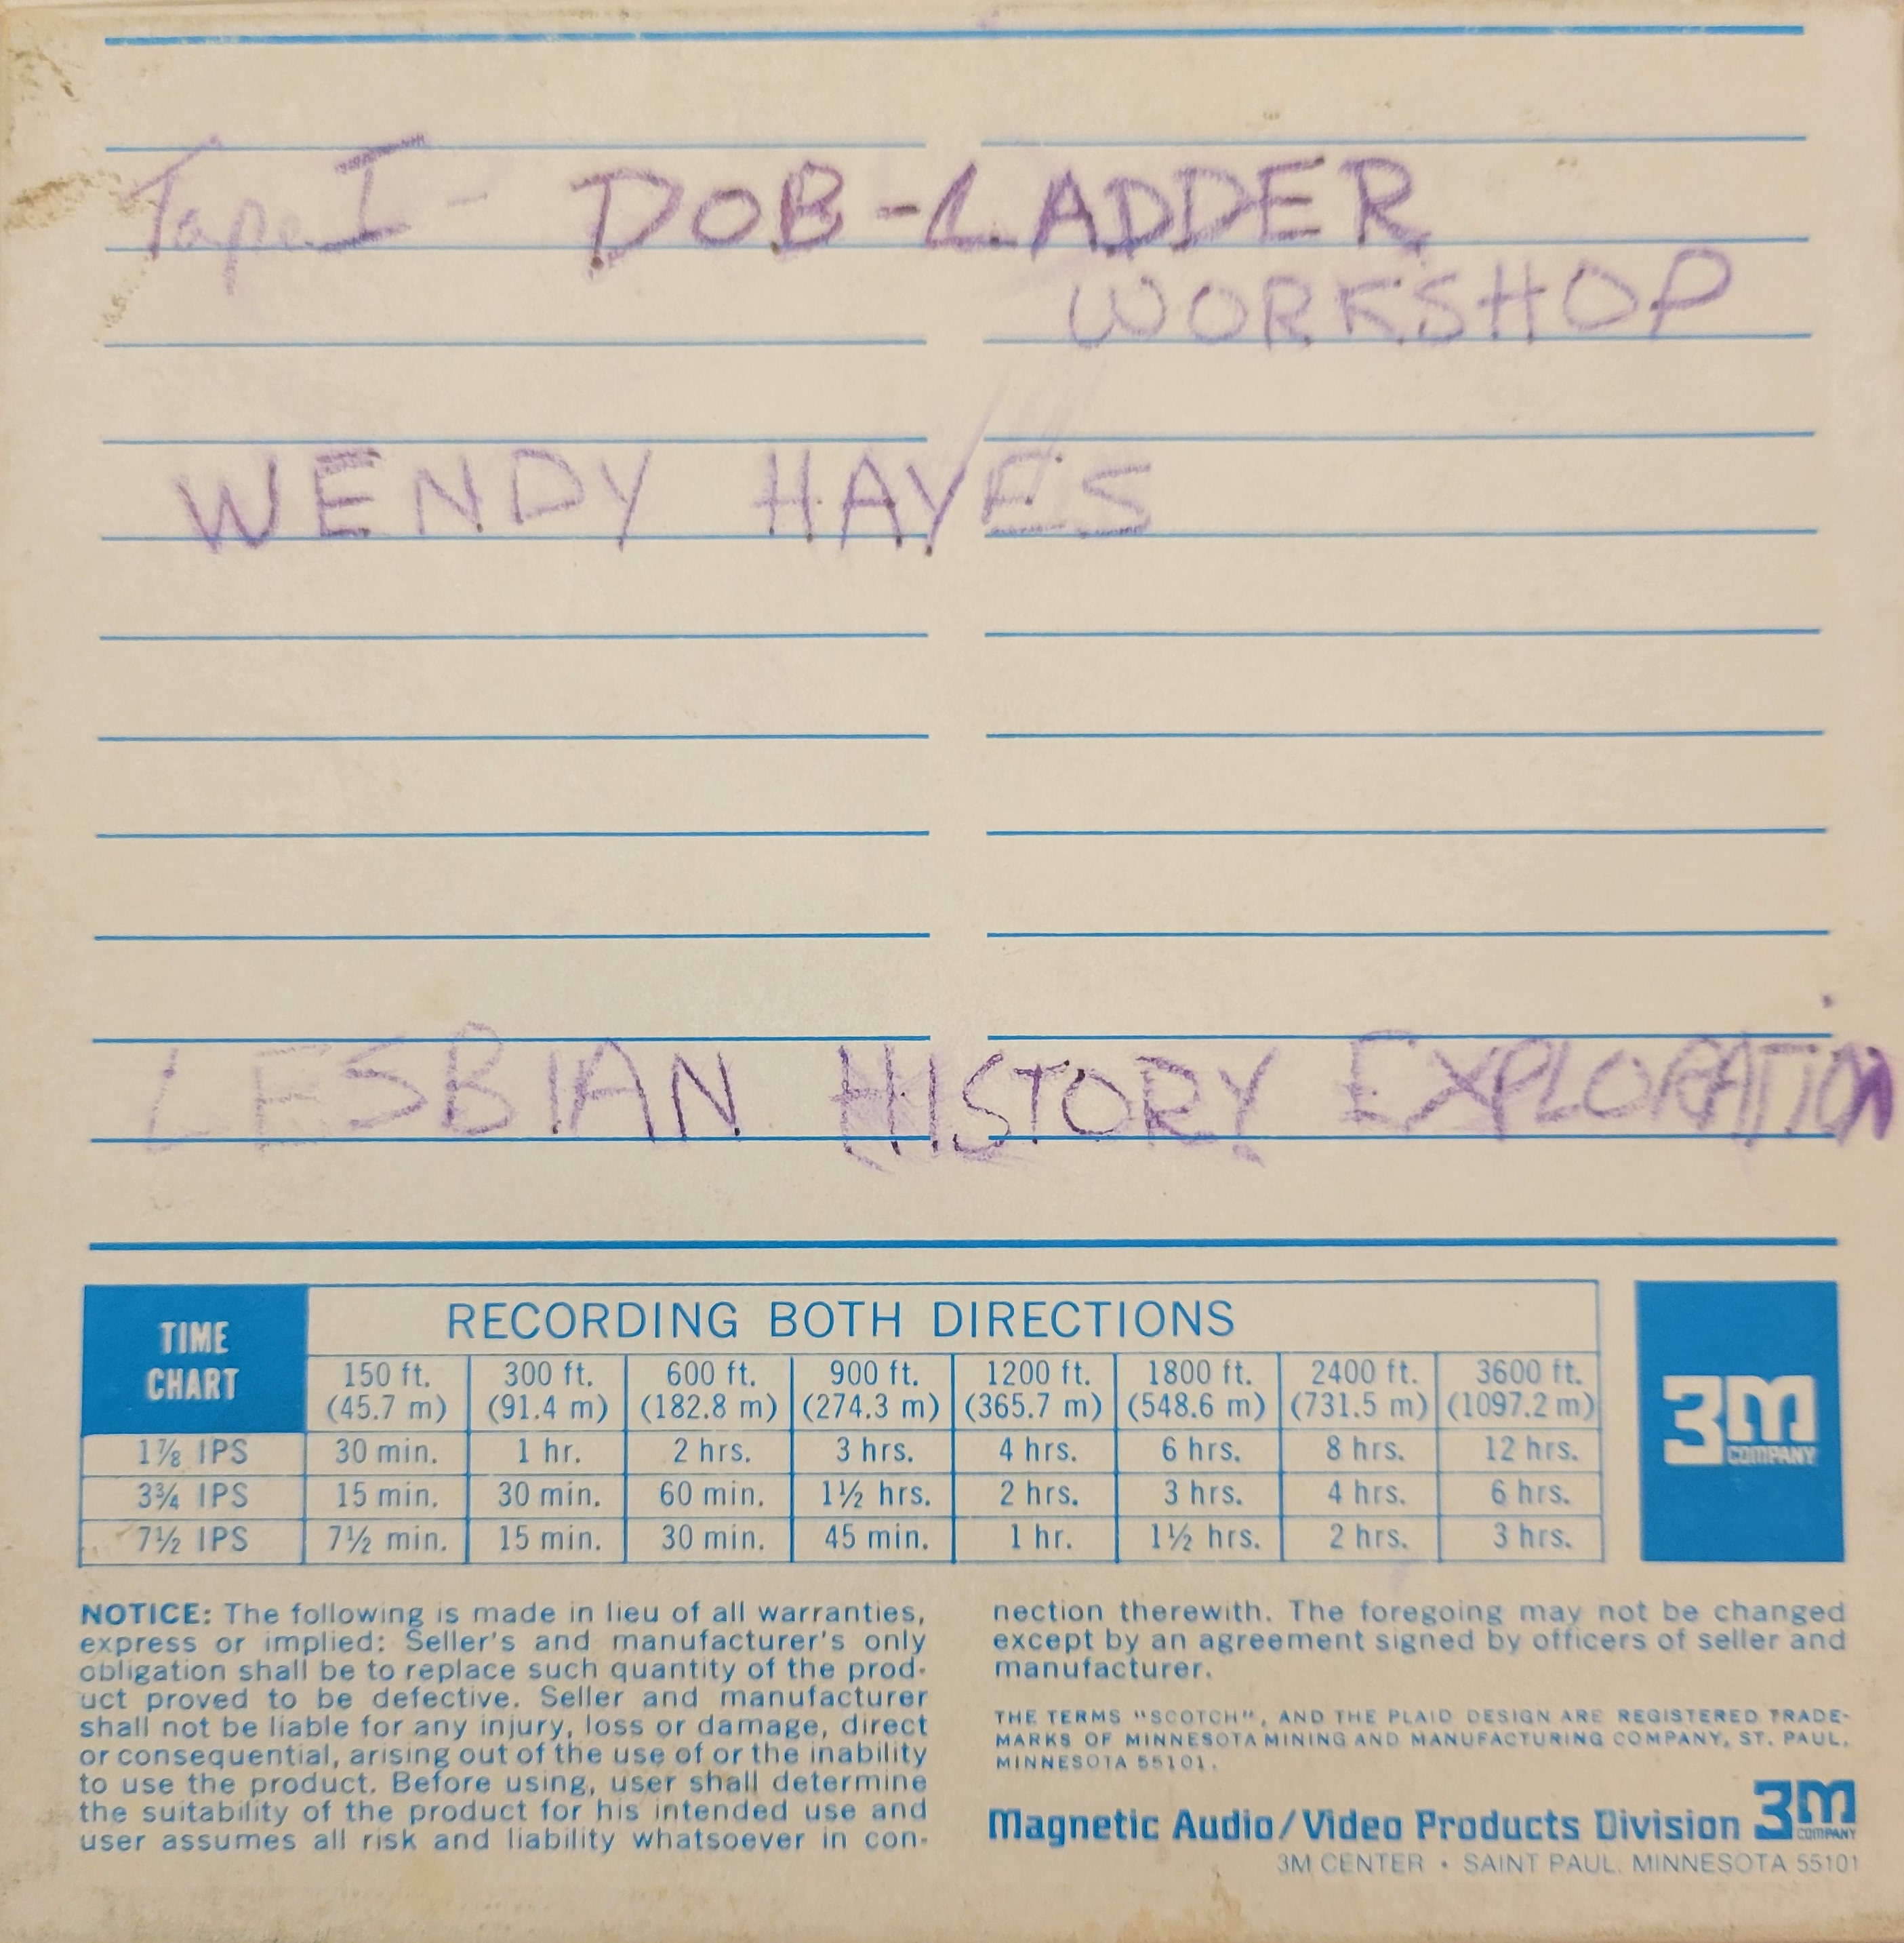 Tape I - DOB-LADDER
WORKSHOP
WENDY HAYES
LESBIAN HISTORY EXPLORATION
TIME
CHART
RECORDING BOTH DIRECTIONS
150 ft. 300 ft. 600 ft. 900 ft. 1200 ft. 1800 ft. 2400 ft. 3600 ft.
(45.7 m) (91.4 m) (182.8 m) (274.3 m) (365.7 m) (548.6 m) (731.5 m) (1097.2 m)
1⅞ IPS 30 min. 1 hr. 2 hrs. 3 hrs. 4 hrs. 6 hrs. 8 hrs. 12 hrs.
3¾ IPS 15 min. 30 min. 60 min. 1½ hrs. 2 hrs. 3 hrs. 4 hrs. 6 hrs.
7½ IPS 7½ min. 15 min. 30 min. 45 min. 1 hr. 1½ hrs. 2 hrs. 3 hrs.
3M
COMPANY
NOTICE: The following is made in lieu of all warranties,
express or implied: Seller's and manufacturer's only
obligation shall be to replace such quantity of the prod-
uct proved to be defective. Seller and manufacturer
shall not be liable for any injury, loss or damage, direct
or consequential, arising out of the use of or the inability
to use the product. Before using, user shall determine
the suitability of the product for his intended use and
user assumes all risk and liability whatsoever in con-
nection therewith. The foregoing may not be changed
except by an agreement signed by officers of seller and
manufacturer.
THE TERMS "SCOTCH", AND THE PLAID DESIGN ARE REGISTERED TRADE-
MARKS OF MINNESOTA MINING AND MANUFACTURING COMPANY, ST. PAUL,
MINNESOTA 55101.
Magnetic Audio/Video Products Division 3M
COMPANY
3M CENTER • SAINT PAUL, MINNESOTA 55101